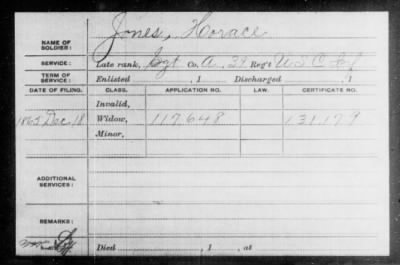 NAME OF SOLDIER: Jones, Horace
SERVICE: Late rank, Sgt Co. A, 39 Reg't U S C Inf
TERM OF SERVICE: Enlisted , 1 Discharged , 1
DATE OF FILING. CLASS. APPLICATION NO. LAW. CERTIFICATE NO.
Invalid,
1865 Dec 18 Widow, 117,648 131,179
Minor,
ADDITIONAL SERVICES:
REMARKS:
Died , 1 , at